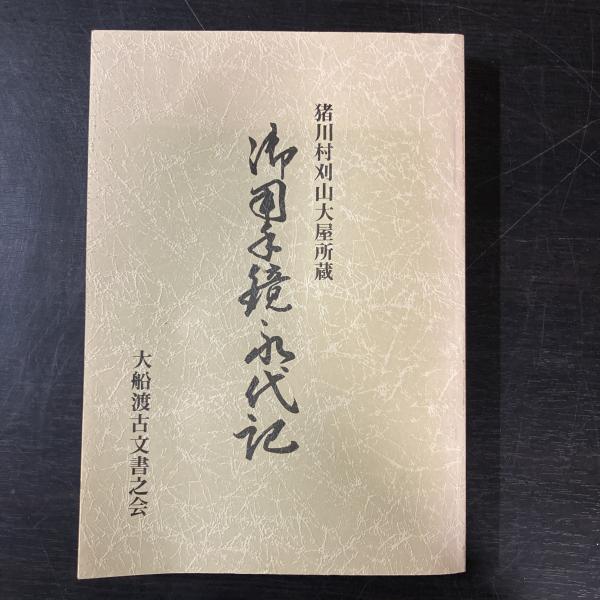 猪川村刈山大屋所蔵
御用手鏡永代記
大船渡古文書之会